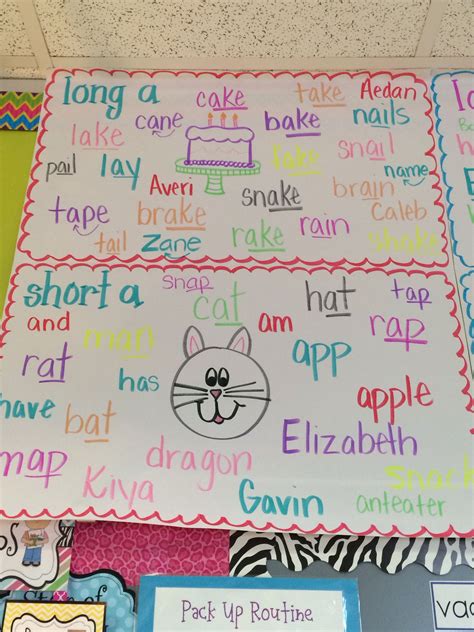 long a
cake
take
Aedan
cane
bake
nails
lake
snail
pail
lay
fake
name
Averi
snake
brain
tape
brake
rain
Caleb
tail
Zane
rake
shake
short a
snap
cat
hat
tap
and
man
am
rap
rat
has
app
apple
have
bat
Elizabeth
map
dragon
snack
Kiya
Gavin
anteater
Pack Up Routine